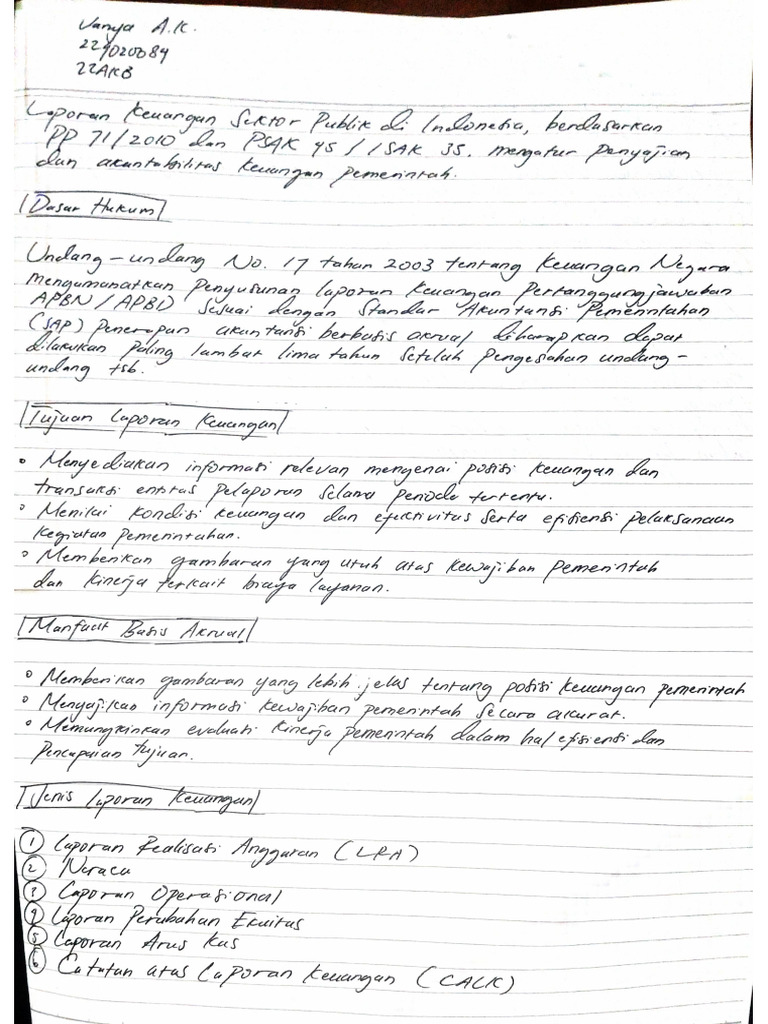 Vanya A.K.
224020084
22AKB
Laporan Keuangan Sektor Publik di Indonesia, berdasarkan
PP 71/2010 dan PSAK 45 / ISAK 35. mengatur penyajian
dan akuntabilitas keuangan pemerintah.
Dasar Hukum
Undang-undang No. 17 tahun 2003 tentang Keuangan Negara
mengamanatkan penyusunan laporan keuangan pertanggungjawaban
APBN / APBD sesuai dengan Standar Akuntansi Pemerintahan
(SAP) penerapan akuntansi berbasis akrual diharapkan dapat
dilakukan paling lambat lima tahun setelah pengesahan undang-
undang tsb.
Tujuan Laporan Keuangan
• Menyediakan informasi relevan mengenai posisi keuangan dan
transaksi entitas pelaporan selama periode tertentu.
• Menilai kondisi keuangan dan efektivitas serta efisiensi pelaksanaan
kegiatan pemerintahan.
• Memberikan gambaran yang utuh atas kewajiban pemerintah
dan kinerja terkait biaya layanan.
Manfaat Basis Akrual
• Memberikan gambaran yang lebih jelas tentang posisi keuangan pemerintah
• Menyajikan informasi kewajiban pemerintah secara akurat.
• Memungkinkan evaluasi kinerja pemerintah dalam hal efisiensi dan
pencapaian tujuan.
Jenis Laporan Keuangan
1 Laporan Realisasi Anggaran (LRA)
2 Neraca
3 Laporan Operasional
4 Laporan Perubahan Ekuitas
5 Laporan Arus Kas
6 Catatan atas Laporan Keuangan (CALK)